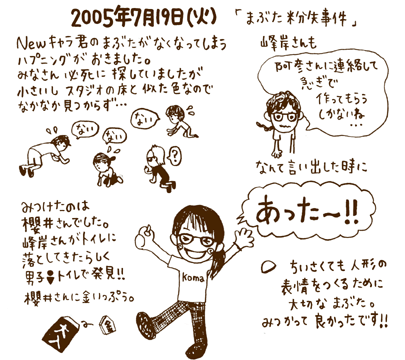 2005年7月19日(火)
「まぶた紛失事件」
Newキャラ君のまぶたがなくなってしまう
ハプニングがおきました。
みなさん必死に探していましたが
小さいしスタジオの床と似た色なので
なかなか見つからず…
ない
ない
ない
?
峰岸さんも
阿彦さんに連絡して
急ぎで
作ってもらう
しかないね…
なんて言い出した時に
あった〜!!
みつけたのは
櫻井さんでした。
峰岸さんがトイレに
落としてきたらしく
男子トイレで発見!!
櫻井さんに金いっぷう。
大入
金
Koma
ちいさくても人形の
表情をつくるために
大切なまぶた。
みつかって良かったです!!